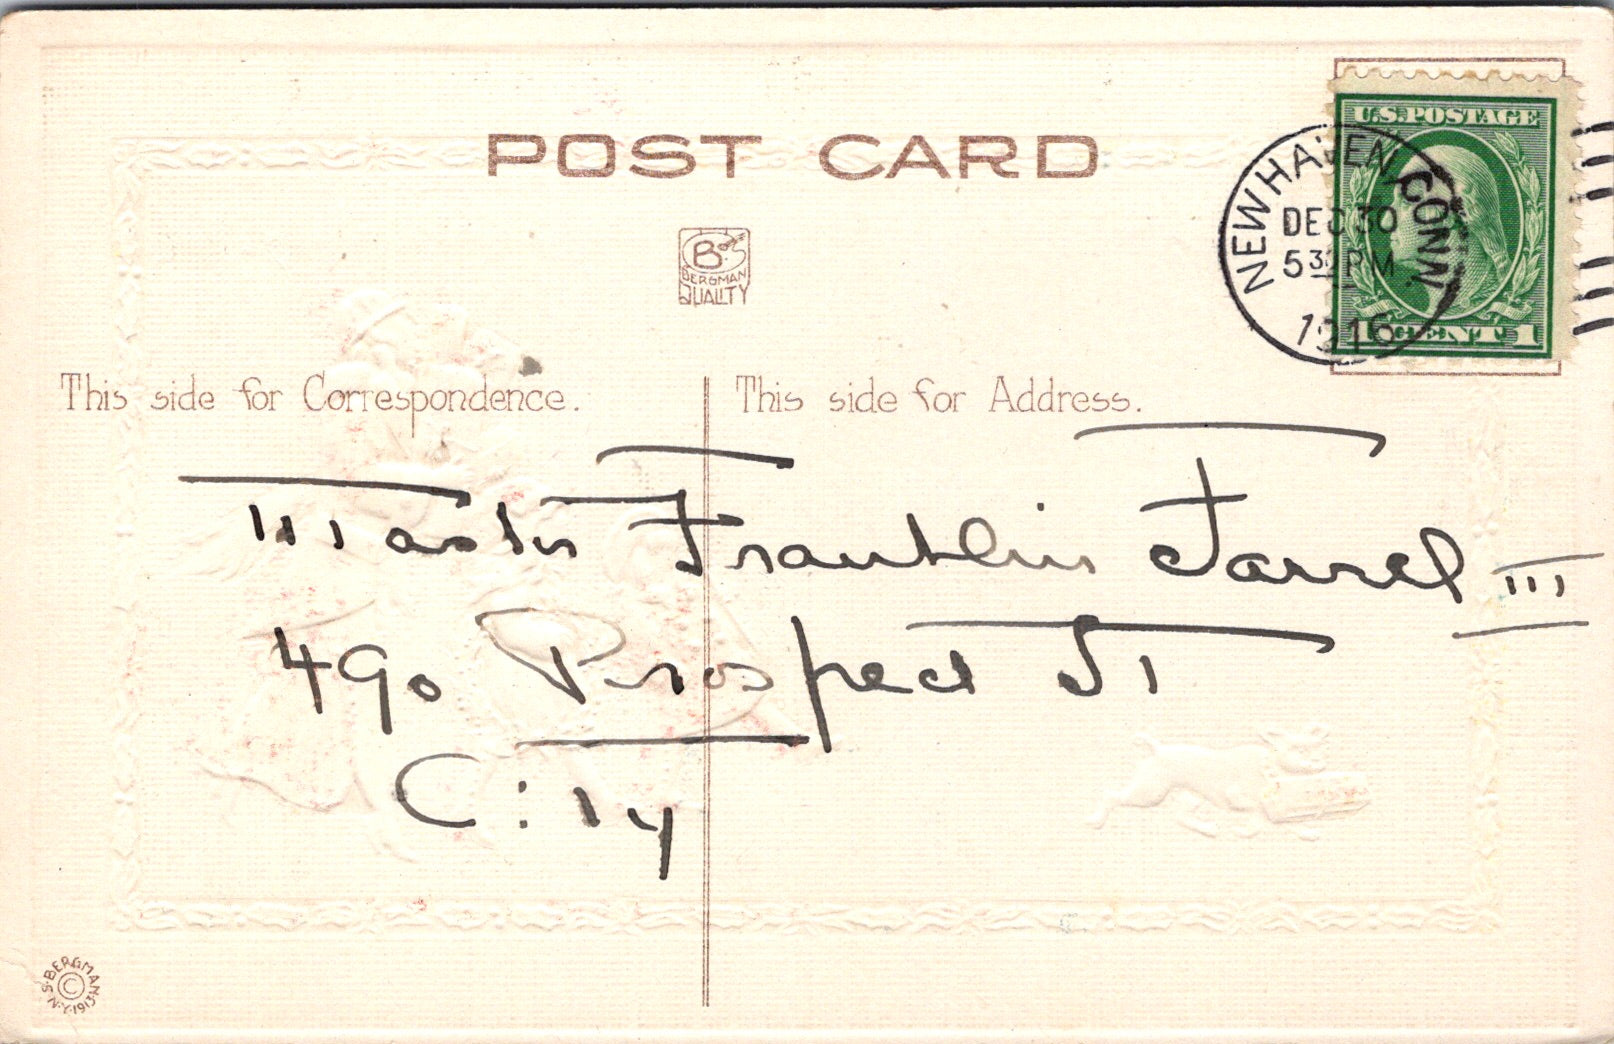 POST CARD
U.S. POSTAGE
NEW HAVEN, CONN.
DEC 30
5 30 PM
1916
1 CENT 1
B's
BERGMAN
QUALITY
This side for Correspondence.
This side for Address.
Master Franklin Farrel III
490 Prospect St
City
© S. BERGMAN N.Y. 1913